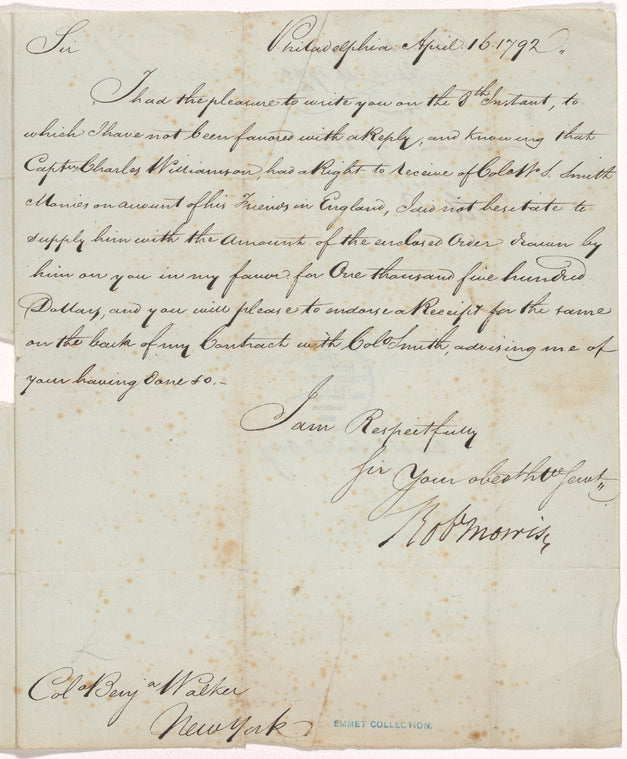 Sir Philadelphia April 16. 1792.
I had the pleasure to write you on the 8th Instant, to
which I have not been favored with a Reply, and knowing that
Captn Charles Williamson, had a Right to receive of Colo Wm S. Smith
Monies on account of his Friends in England, I did not hesitate to
supply him with the Amount of the enclosed Order drawn by
him on you in my favor for One thousand five hundred
Dollars, and you will please to endorse a Receipt for the same
on the back of my Contract with Colo Smith, advising me of
your having done so.-
I am Respectfully
Sir
Your obedt hble Servt
Robt Morris
Colo Benja Walker
New York
EMMET COLLECTION.